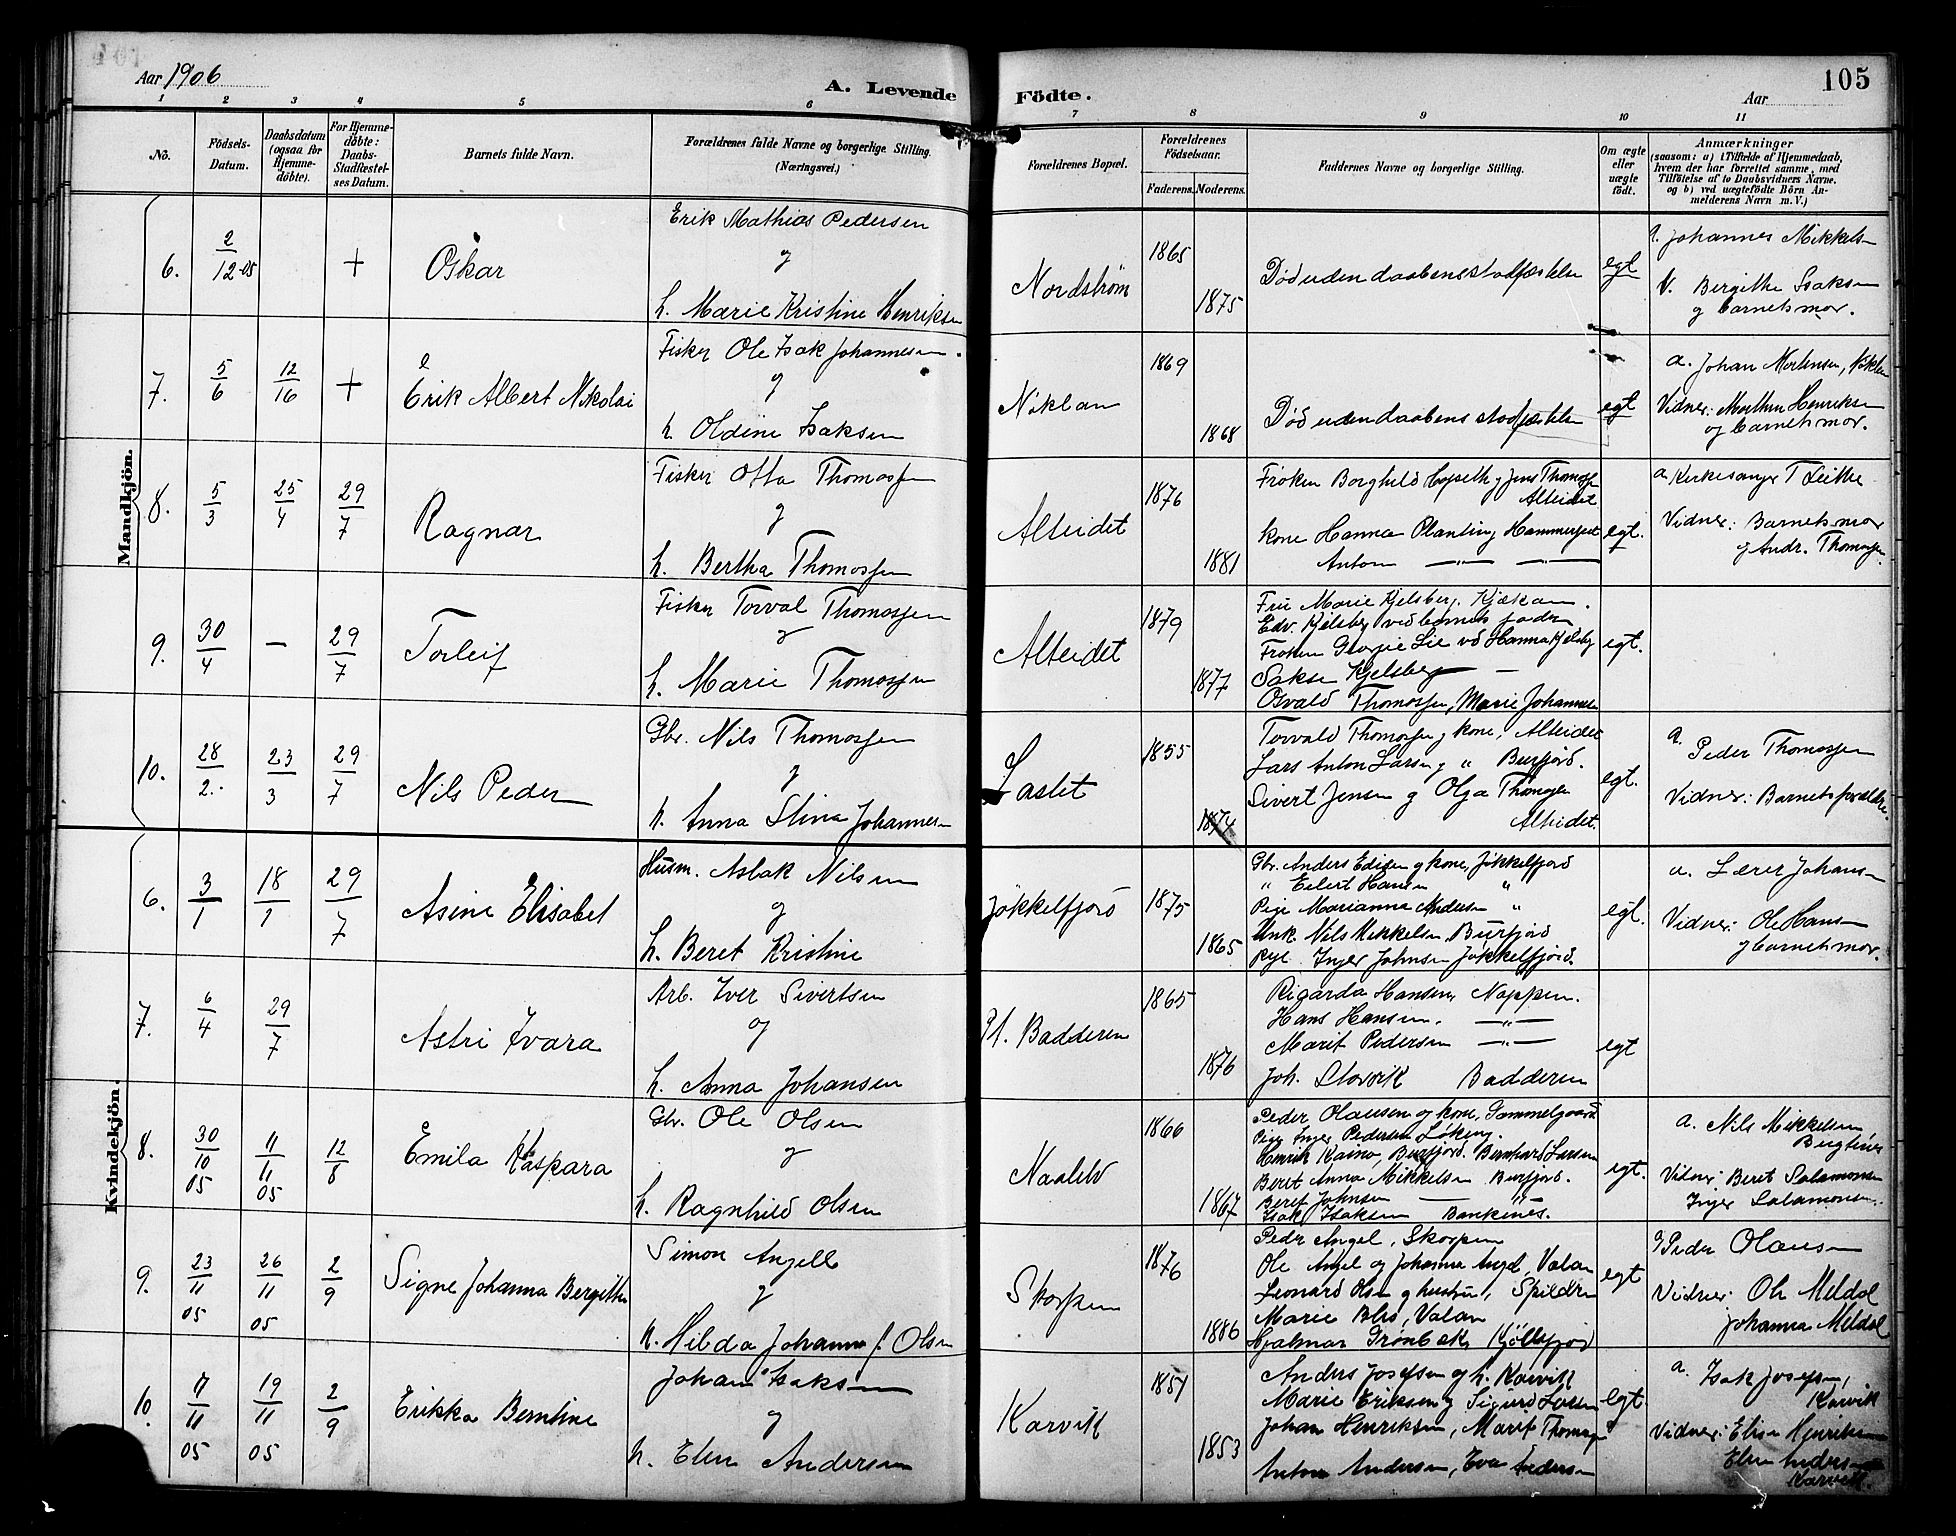 Aar 1906
A. Levende Födte.
Aar
105
1 2 3 4 5 6 7 8 9 10 11
No.
Födsels-Datum.
Daabsdatum (ogsaa for Hjemme-döbte).
For Hjemme-döbte: Daabs-Stadfæstel-ses Datum.
Barnets fulde Navn.
Forældrenes fulde Navne og borgerlige Stilling. (Næringsvei.)
Forældrenes Bopæl.
Forældrenes Födselsaar.
Faderens. Moderens.
Faddernes Navne og borgerlige Stilling.
Om ægte eller uægte födt.
Anmærkninger
(saasom: a) i Tilfælde af Hjemmedaab,
hvem der har forrettet samme, med
Tilföielse af to Daabsvidners Navne,
og b) ved uægtefödte Börn An-
melderens Navn m. V.)
Mandkjön.
6. 2/12-05 + Oskar
Erik Mathias Pedersen
g
h. Marie Kristine Henriksen
Nordstrøm 1865 1875
Død uden daabens stadfæstelse
egt
Johannes Mikkelsn
V. Bergithe Isaksen
g barnets mor.
7. 5/6 12/16 + Erik Albert Nikolai
Fisker Ole Isak Johannesen.
g
h. Oldine Isaksen
Niklan 1869 1868
Død uden daabens stadfæstelse
egt
a. Johan Mortensen,
Vidner: Marthen Henriksen
og barnets mor.
8. 5/3 25/4 29/7 Ragnar
Fisker Otto Thomassen
g
h. Bertha Thomassen
Alteidet 1876 1881
Frøken Borghild Hopseth g Jens Thomassen
Alteidet
kone Hanna Planting Hammerfest
Anton — " — —"—
egt.
a. Kirkesanger T Leithe
Vidner: Barnets mor
g Andr. Thomassen.
9. 30/4 — 29/7 Torleif
Fisker Torval Thomassen
g
h. Marie Thomassen
Alteidet 1879 1877
Fru Marie Kjelsberg, Kjækan.
Edv. Kjelsberg ved barnets fader
Frøken Georgie Lie vd Hanna Kjelsberg
Sakse Kjelsberg —
Osvald Thomassen, Marie Johannsen
egt.
10. 28/2 23/3 29/7 Nils Peder
Gbr. Nils Thomassen
g
h. Anna Stina Johannesen
Lastet 1855 1874
Torvald Thomassen g kone, Alteidet
Lars Anton Larsen g " Burfjord.
Sivert Jensen g Olga Thomassen
Alteidet.
egt.
a. Peder Thomassen
Vidner: Barnets forældre.
Kvindekjön.
6. 3/1 18/1 29/7 Asine Elisabet
Husm. Aslak Nilsen
g
h. Beret Kristine
Jøkkelfjord 1875 1865
Gbr. Anders Edisen g kone, Jøkkelfjord
" Eilert Hansen "
Pige Marianna Andersen "
Unk. Nils Mikkelsen, Burfjord
Inger Johnsen Jøkkelfjord.
egt.
a. Lærer Johansen
Vidner: Ole Hansen
g barnets mor.
7. 6/4 29/7 Astri Ivara
Arb. Iver Sivertsen
g
h. Anna Johansen
Badderen 1865 1876
Rigarda Hansen, Nappen.
Hans Hansen. —"—
Marit Pedersen —"—
Joh. Storvik Badderen
egt
8. 30/10 05 11/11 05 12/8 Emila Kaspara
Gbr. Ole Olsen
g
h. Ragnhild Olsen
Naalelv 1866 1867
Peder Olausen og kone, Gammelgaard
Pige Inger Pedersen Løkeng.
Henrik Kaino, Burfjord. Bernhard Larsen
Beret Anna Mikkelsen Burfjord.
Beret Johnsen — " —
Isak Isaksen Bankenes.
egt.
a. Nils Mikkelsen
Vidner: Beret Salamonsen
Inger Salamonsen.
9. 23/11 05 26/11 05 2/9 Signe Johanna Bergithe
Simon Angell
g
h. Hilda Johanna f. Olsen
Skorpen 1876 1886
Pedr Angel, Skorpen
Ole Angel og Johanna Angel, Valan
Leonard Olsen g hustru, Spildra
Marie Blix, Valan
Hjalmar Grønbæk, Kjøllefjord
egt
Peder Olausen
Vidner: Ole Meldal
Johanna Meldal
10. 17/11 05 19/11 05 2/9 Erikka Berntine
Johan Isaksen
g
h. Elen Andersen
Karvik 1851 1853
Anders Josefsen og h. Karvik
Marie Eriksen g Sigurd Larsen
Johan Henriksen, Marit Thomassen
Anton Andersen, Eva Andersen
egt.
a. Isak Josefsen,
Karvik
Vidner: Elise Henriksen
Elen Andersen
Karvik.